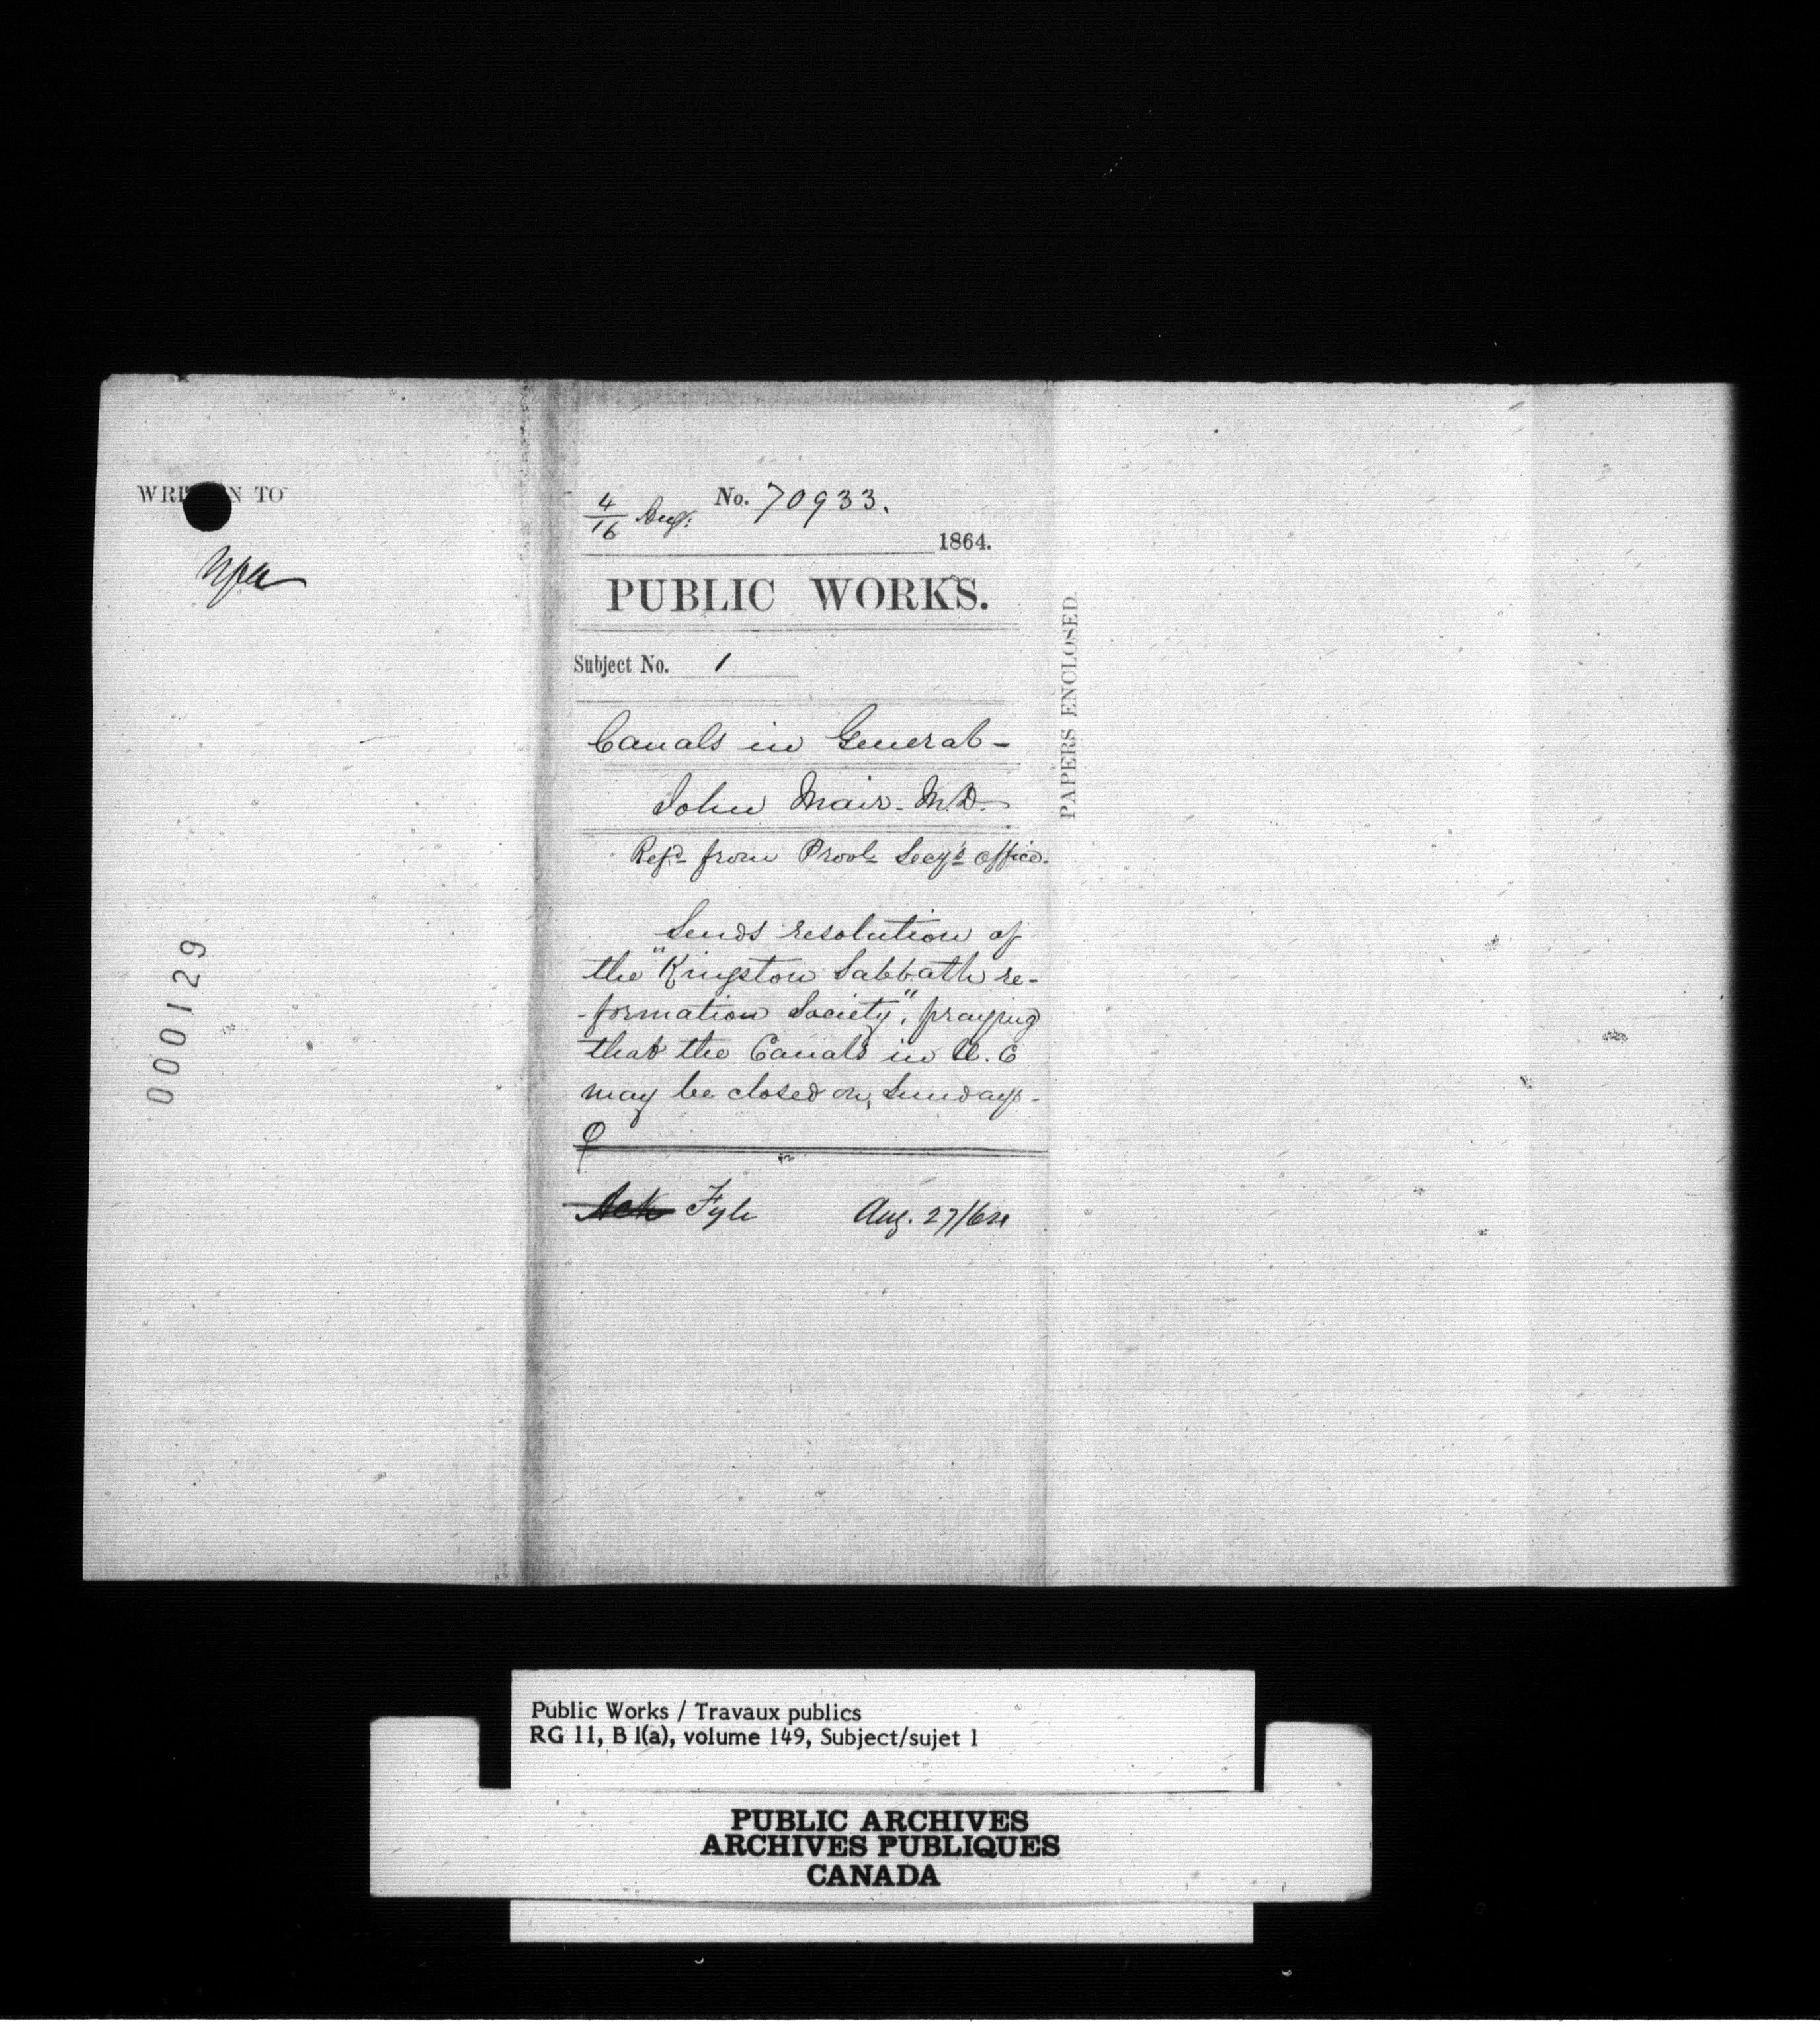 WRITTEN TO
000129
No. 70933.
4/16 Augt.
1864.
PUBLIC WORKS.
Subject No. 1
Canals in General -
John Mair - M.D.
Refd from Provl Secy's office.
Sends resolution of
the "Kingston Sabbath re-
-formation Society", praying
that the Canals in U. C
may be closed on Sundays -
Ack Fyle Aug. 27/64
PAPERS ENCLOSED.
Public Works / Travaux publics
RG 11, B 1(a), volume 149, Subject/sujet 1
PUBLIC ARCHIVES
ARCHIVES PUBLIQUES
CANADA